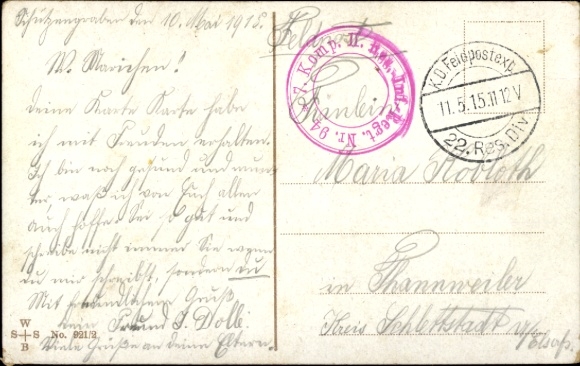 Schützengraben den 10. Mai 1915.
W. Mariechen!
deine Karte Karte habe
ich mit Freuden erhalten.
Ich bin noch gesund und mun-
ter waß ich von Euch allen
auch hoffe. Sei so gut und
schreibe nicht immer Sie wenn
du mir schreibst, sondern du
Mit freundlichem Gruß
dein Freund J. Dolle
Viele Grüße an deine Eltern.
W
S S
B
No. 921/2
Feldpost
7. Komp. II. Res. Inf. Regt. Nr. 94
K.D. Feldpostexp.
11.5.15.11-12 V
22. Res. Div.
Maria
in Thannweiler
Kreis Schlettstadt